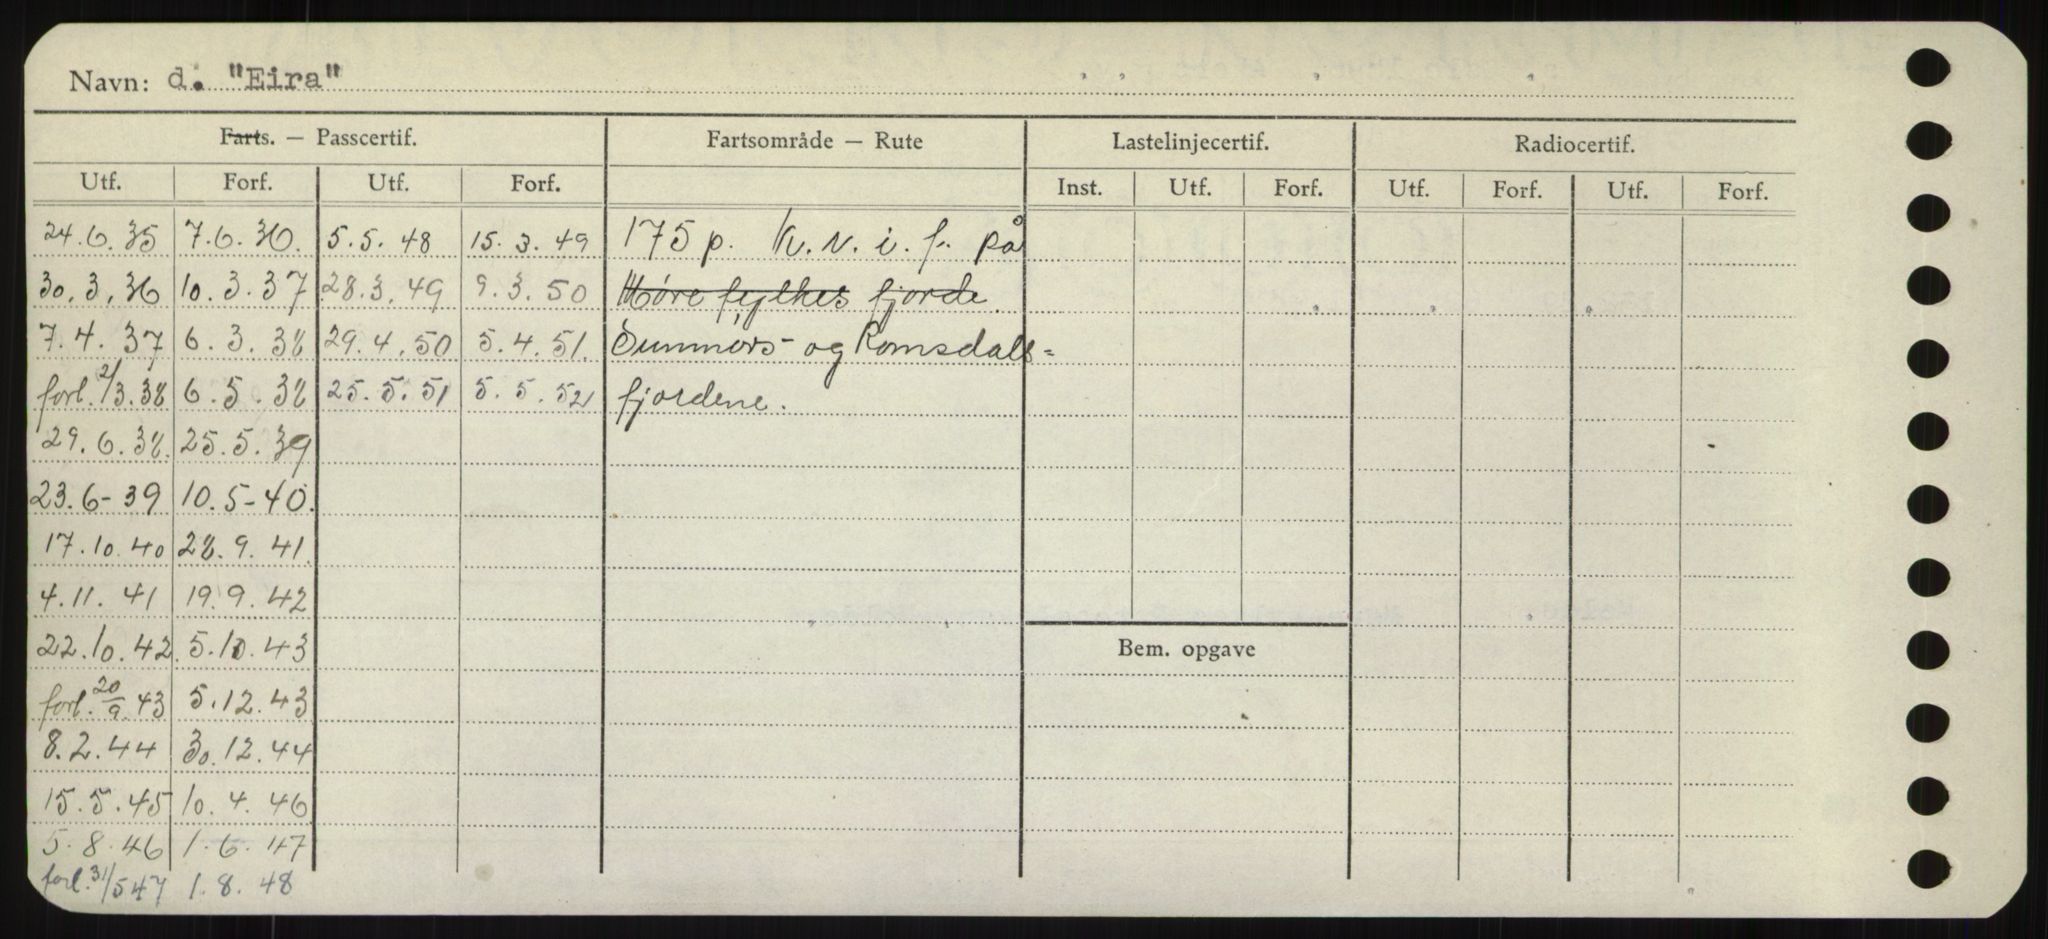 Navn: d. "Eira"
Farts. — Passcertif. Fartsområde — Rute Lastelinjecertif. Radiocertif.
Utf. Forf. Utf. Forf. Inst. Utf. Forf. Utf. Forf. Utf. Forf.
24.6.35 7.6.36. 5.5.48 15.3.49 175 p. k.v.i.f. på
30.3.36 10.3.37 28.3.49 9.3.50 Møre fylkes fjorde.
7.4.37 6.3.38 29.4.50 5.4.51. Sunmørs- og Romsdals=
forl. 2/3.38 6.5.38 25.5.51 5.5.52 fjordene.
29.6.38. 25.5.39
23.6-39 10.5-40.
17.10.40 28.9.41.
4.11.41 19.9.42
22.10.42. 5.10.43
forl. 20/9.43 5.12.43
8.2.44 30.12.44
15.5.45 10.4.46
5.8.46 1.6.47
forl. 31/5 47 1.8.48
Bem. opgave